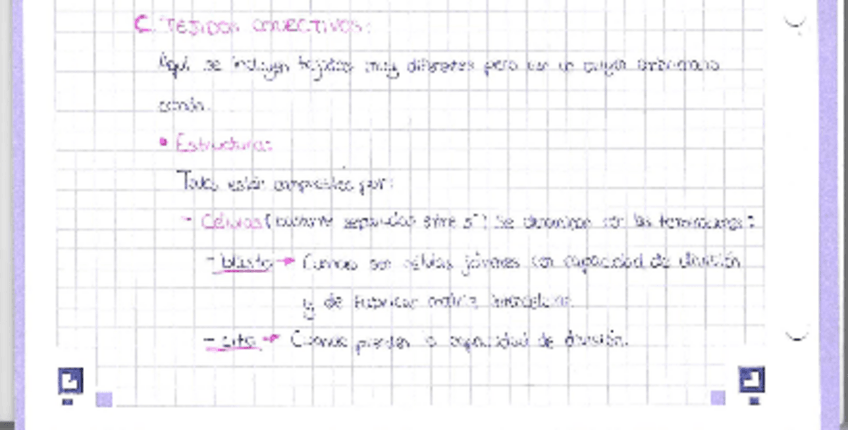 C. TEJIDOS CONECTIVOS:
Aquí se incluyen tejidos muy diferentes pero con un origen embrionario
común.
• Estructura:
Todos están compuestos por:
- Células (bastante separadas entre sí). Se denominan con las terminaciones:
- blasto → Cuando son células jóvenes con capacidad de división
y de fabricar matriz intercelular.
- cito → Cuando pierden la capacidad de división.